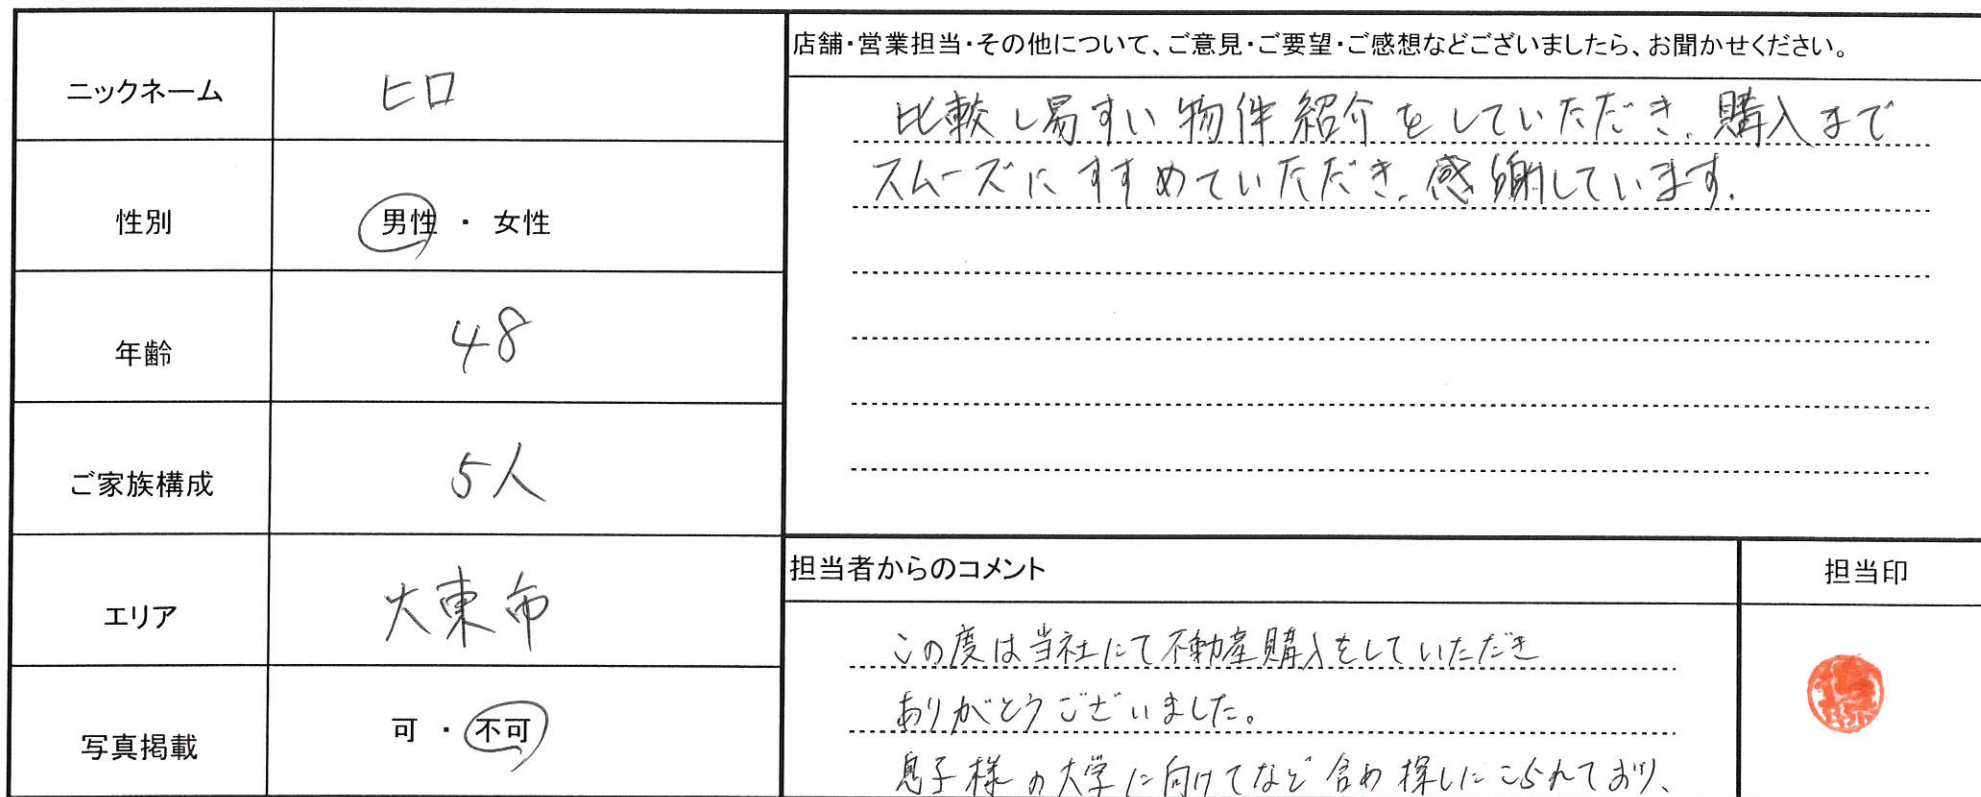 ニックネーム
ヒロ
性別
男性 ・ 女性
年齢
48
ご家族構成
5人
エリア
大東市
写真掲載
可 ・ 不可
店舗・営業担当・その他について、ご意見・ご要望・ご感想などございましたら、お聞かせください。
比較し易すい物件紹介をしていただき、購入まで
スムーズにすすめていただき、感謝しています。
担当者からのコメント
この度は当社にて不動産購入をしていただき
ありがとうございました。
息子様の大学に向けてなど含め探しにこられており、
担当印